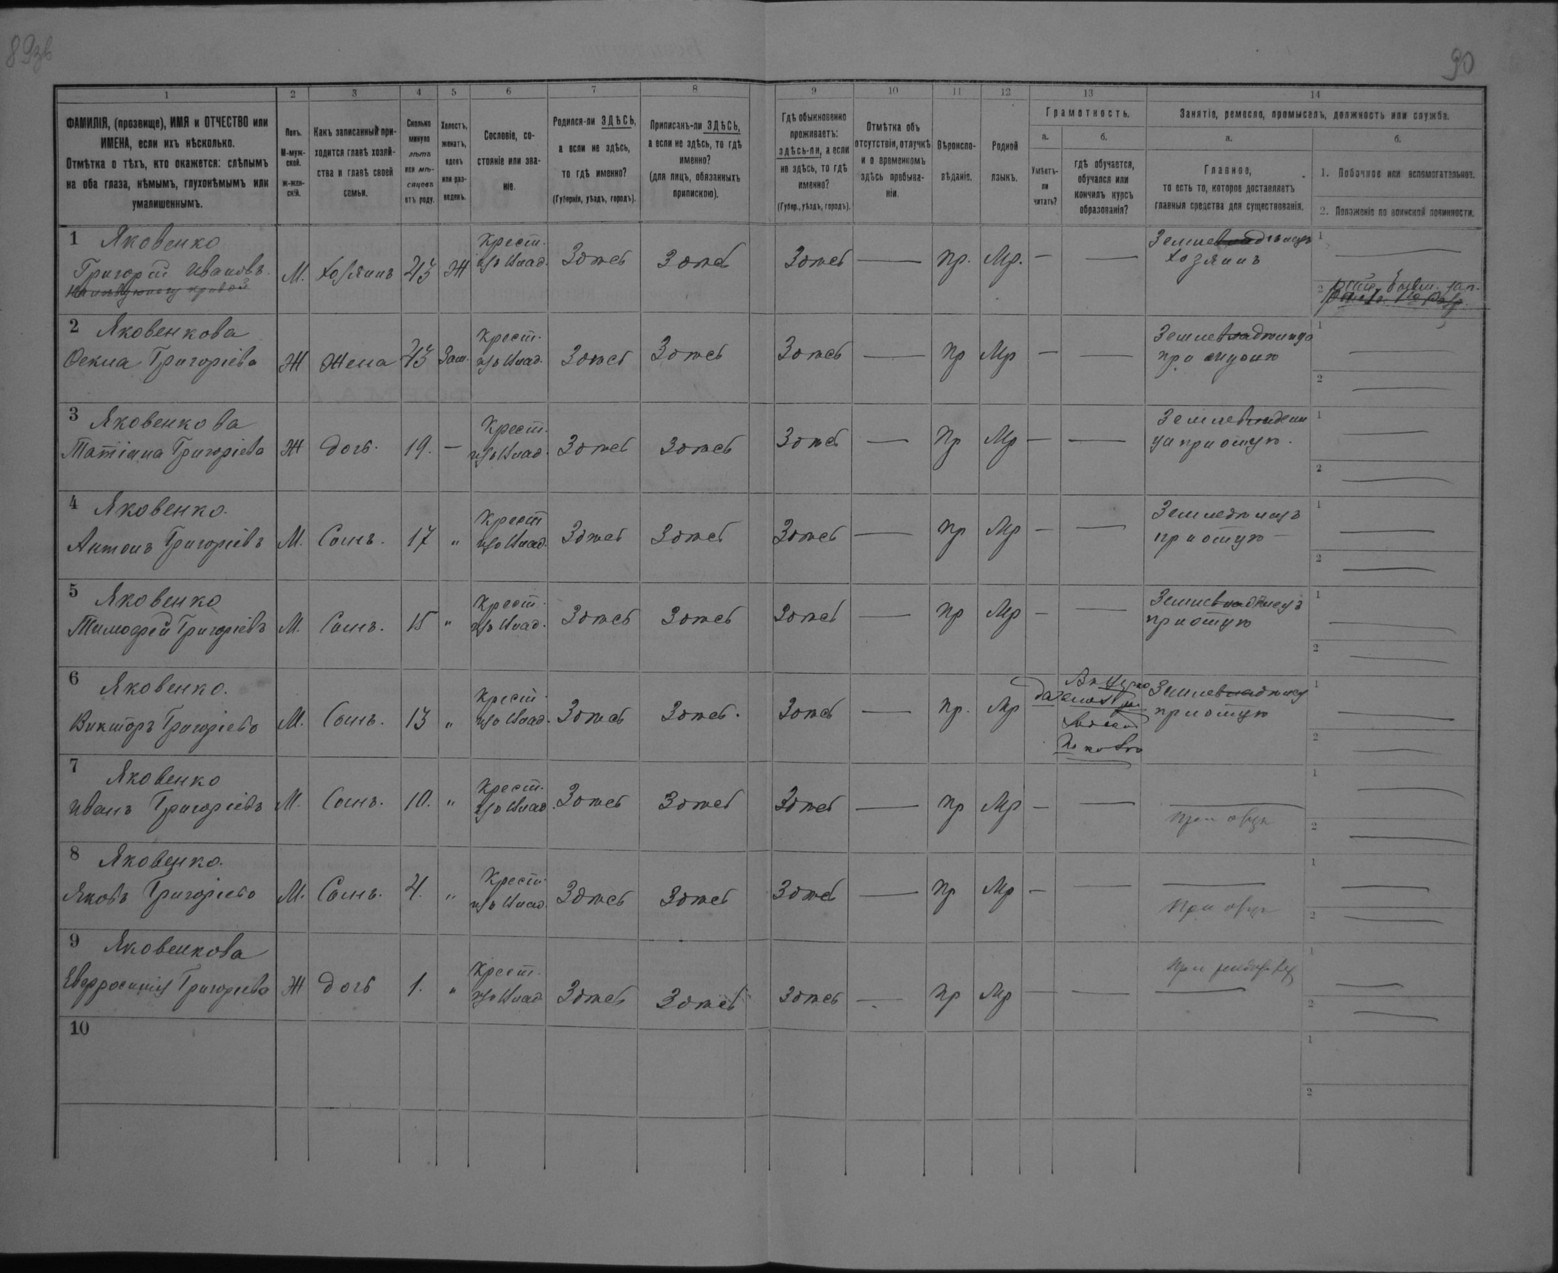 89об
90
1 2 3 4 5 6 7 8 9 10 11 12 13 14
ФАМИЛІЯ, (прозвище), ИМЯ и ОТЧЕСТВО или
ИМЕНА, если ихъ нѣсколько.
Отмѣтка о тѣхъ, кто окажется: слѣпымъ
на оба глаза, нѣмымъ, глухонѣмымъ или
умалишеннымъ.
Полъ.
М-муж-
ской.
Ж-жен-
скій.
Какъ записанный при-
ходится главѣ хозяй-
ства и главѣ своей
семьи.
Сколько
минуло
лѣтъ
или мѣ-
сяцевъ
отъ роду.
Холостъ,
женатъ,
вдовъ
или раз-
веденъ.
Сословіе, со-
стояніе или зва-
ніе.
Родился-ли ЗДѢСЬ,
а если не здѣсь,
то гдѣ именно?
(Губернія, уѣздъ, городъ).
Приписанъ-ли ЗДѢСЬ,
а если не здѣсь, то гдѣ
именно?
(для лицъ, обязанныхъ
припискою).
Гдѣ обыкновенно
проживаетъ:
здѣсь-ли, а если
не здѣсь, то гдѣ
именно?
(Губер., уѣздъ, городъ).
Отмѣтка объ
отсутствіи, отлучкѣ
и о временномъ
здѣсь пребыва-
ніи.
Вѣроиспо-
вѣданіе.
Родной
языкъ.
Грамотность.
а.
Умѣетъ-
ли
читать?
б.
гдѣ обучается,
обучался или
кончилъ курсъ
образованія?
Занятія, ремесло, промыселъ, должность или служба.
а.
Главное,
то есть то, которое доставляетъ
главныя средства для существованія.
б.
1. Побочное или вспомогательное.
2. Положеніе по воинской повинности.
1 Яковенко
Григорій Ивановъ
М. Хозяинъ 45 Ж Крест. из. Влад. Здѣсь Здѣсь Здѣсь — Пр. Мр. — — Хозяинъ
1
2
2 Яковенкова
Ѳекла Григоріева
Ж Жена 45 Зам. Крест. из. Влад. Здѣсь Здѣсь Здѣсь — Пр Мр — —
1
2
3 Яковенкова
Татіана Григоріева
Ж Дочь. 19. — Крест. из. Влад. Здѣсь Здѣсь Здѣсь — Пр Мр — — при отцѣ.
1
2
4 Яковенко.
Антонъ Григоріевъ
М. Сынъ. 17 „ Крест. из. Влад. Здѣсь Здѣсь Здѣсь — Пр Мр — — Земледѣлецъ при отцѣ
1
2
5 Яковенко
Тимофей Григоріевъ
М. Сынъ. 15 „ Крест. из. Влад. Здѣсь Здѣсь Здѣсь — Пр Мр — — при отцѣ
1
2
6 Яковенко.
Викторъ Григоріевъ
М. Сынъ. 13 „ Крест. из. Влад. Здѣсь Здѣсь. Здѣсь — Пр. Мр при отцѣ
1
2
7 Яковенко
Иванъ Григоріевъ
М. Сынъ. 10. „ Крест. из. Влад. Здѣсь Здѣсь Здѣсь — Пр Мр — — При отцѣ
1
2
8 Яковенко.
Яковъ Григоріевъ
М. Сынъ. 4. „ Крест. из. Влад. Здѣсь Здѣсь Здѣсь — Пр Мр — — При отцѣ
1
2
9 Яковенкова
Евфросинія Григоріева
Ж Дочь 1. „ Крест. из. Влад. Здѣсь Здѣсь Здѣсь — Пр Мр — — При
1
2
10
1
2